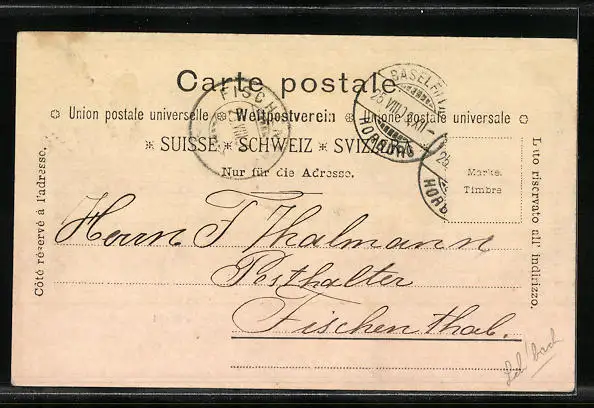 Carte postale
Union postale universelle Weltpostverein Unione postale universale
* SUISSE * SCHWEIZ * SVIZZERA
Nur für die Adresse.
Marke.
Timbre
Côté réservé à l'adresse.
Lato riservato all' indirizzo.
25 VIII
HORBURG
Herrn F Thalmann
Posthalter
Fischenthal.